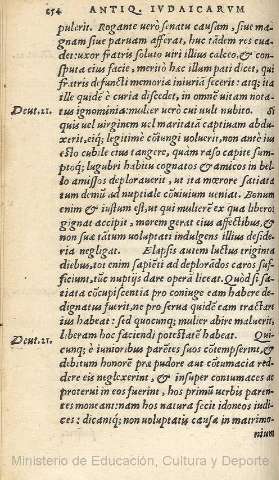 254 ANTIQ. IVDAICARVM
pulerit. Rogante verò senatu causam, siue ma-
gnam siue paruam afferat, huc tādem res eua-
det: vxor fratris soluto viri illius calceo, & con-
sputa eius facie, meritò hæc illum pati dicet, qui
fratris defuncti memoria iniuriā fecerit: atq; ita
ille quidē è curia discedet, in omnē vitam nota-
tus ignominia: mulier verò cui vult nubito. Si
Deut. 21. quis vel virginem vel maritatā captiuam abdu-
xerit, eiq́; legitimè cōiungi voluerit, non antè ius
esto cubile eius tangere, quàm raso capite sum-
ptoq́; lugubri habitu cognatos & amicos in bel-
lo amissos deplorauerit, vt ita mœrore satiata
tum demū ad nuptiale cōuiuium veniat. Bonum
enim & iustum est, vt qui mulierē ex qua liberos
gignat accipit, morem gerat eius affectibus, &
non suæ tātum voluptati indulgens illius deside-
ria negligat. Elapsis autem luctus triginta
diebus, tot enim sapiēti ad deplorādos caros suf-
ficiunt, tūc nuptijs dare operā liceat. Quòd si sa-
tiata cōcupiscentia pro coniuge eam habere de-
dignatus fuerit, ne pro serua quidē eam tractare
ius habeat: sed quocunq; mulier abire maluerit,
liberam hoc faciendi potestatē habeat. Qui-
Deut. 21. cunq; è iunioribus parētes suos cōtempserint, &
debitum honorē præ pudore aut cōtumacia red-
dere eis neglexerint, & insuper contumaces ac
proterui in eos fuerint, hos primū verbis paren-
tes moneant: nam hos natura fecit idoneos iudi-
ces: dicantq́; non voluptatis causa in matrimo-
nium
Ministerio de Educación, Cultura y Deporte